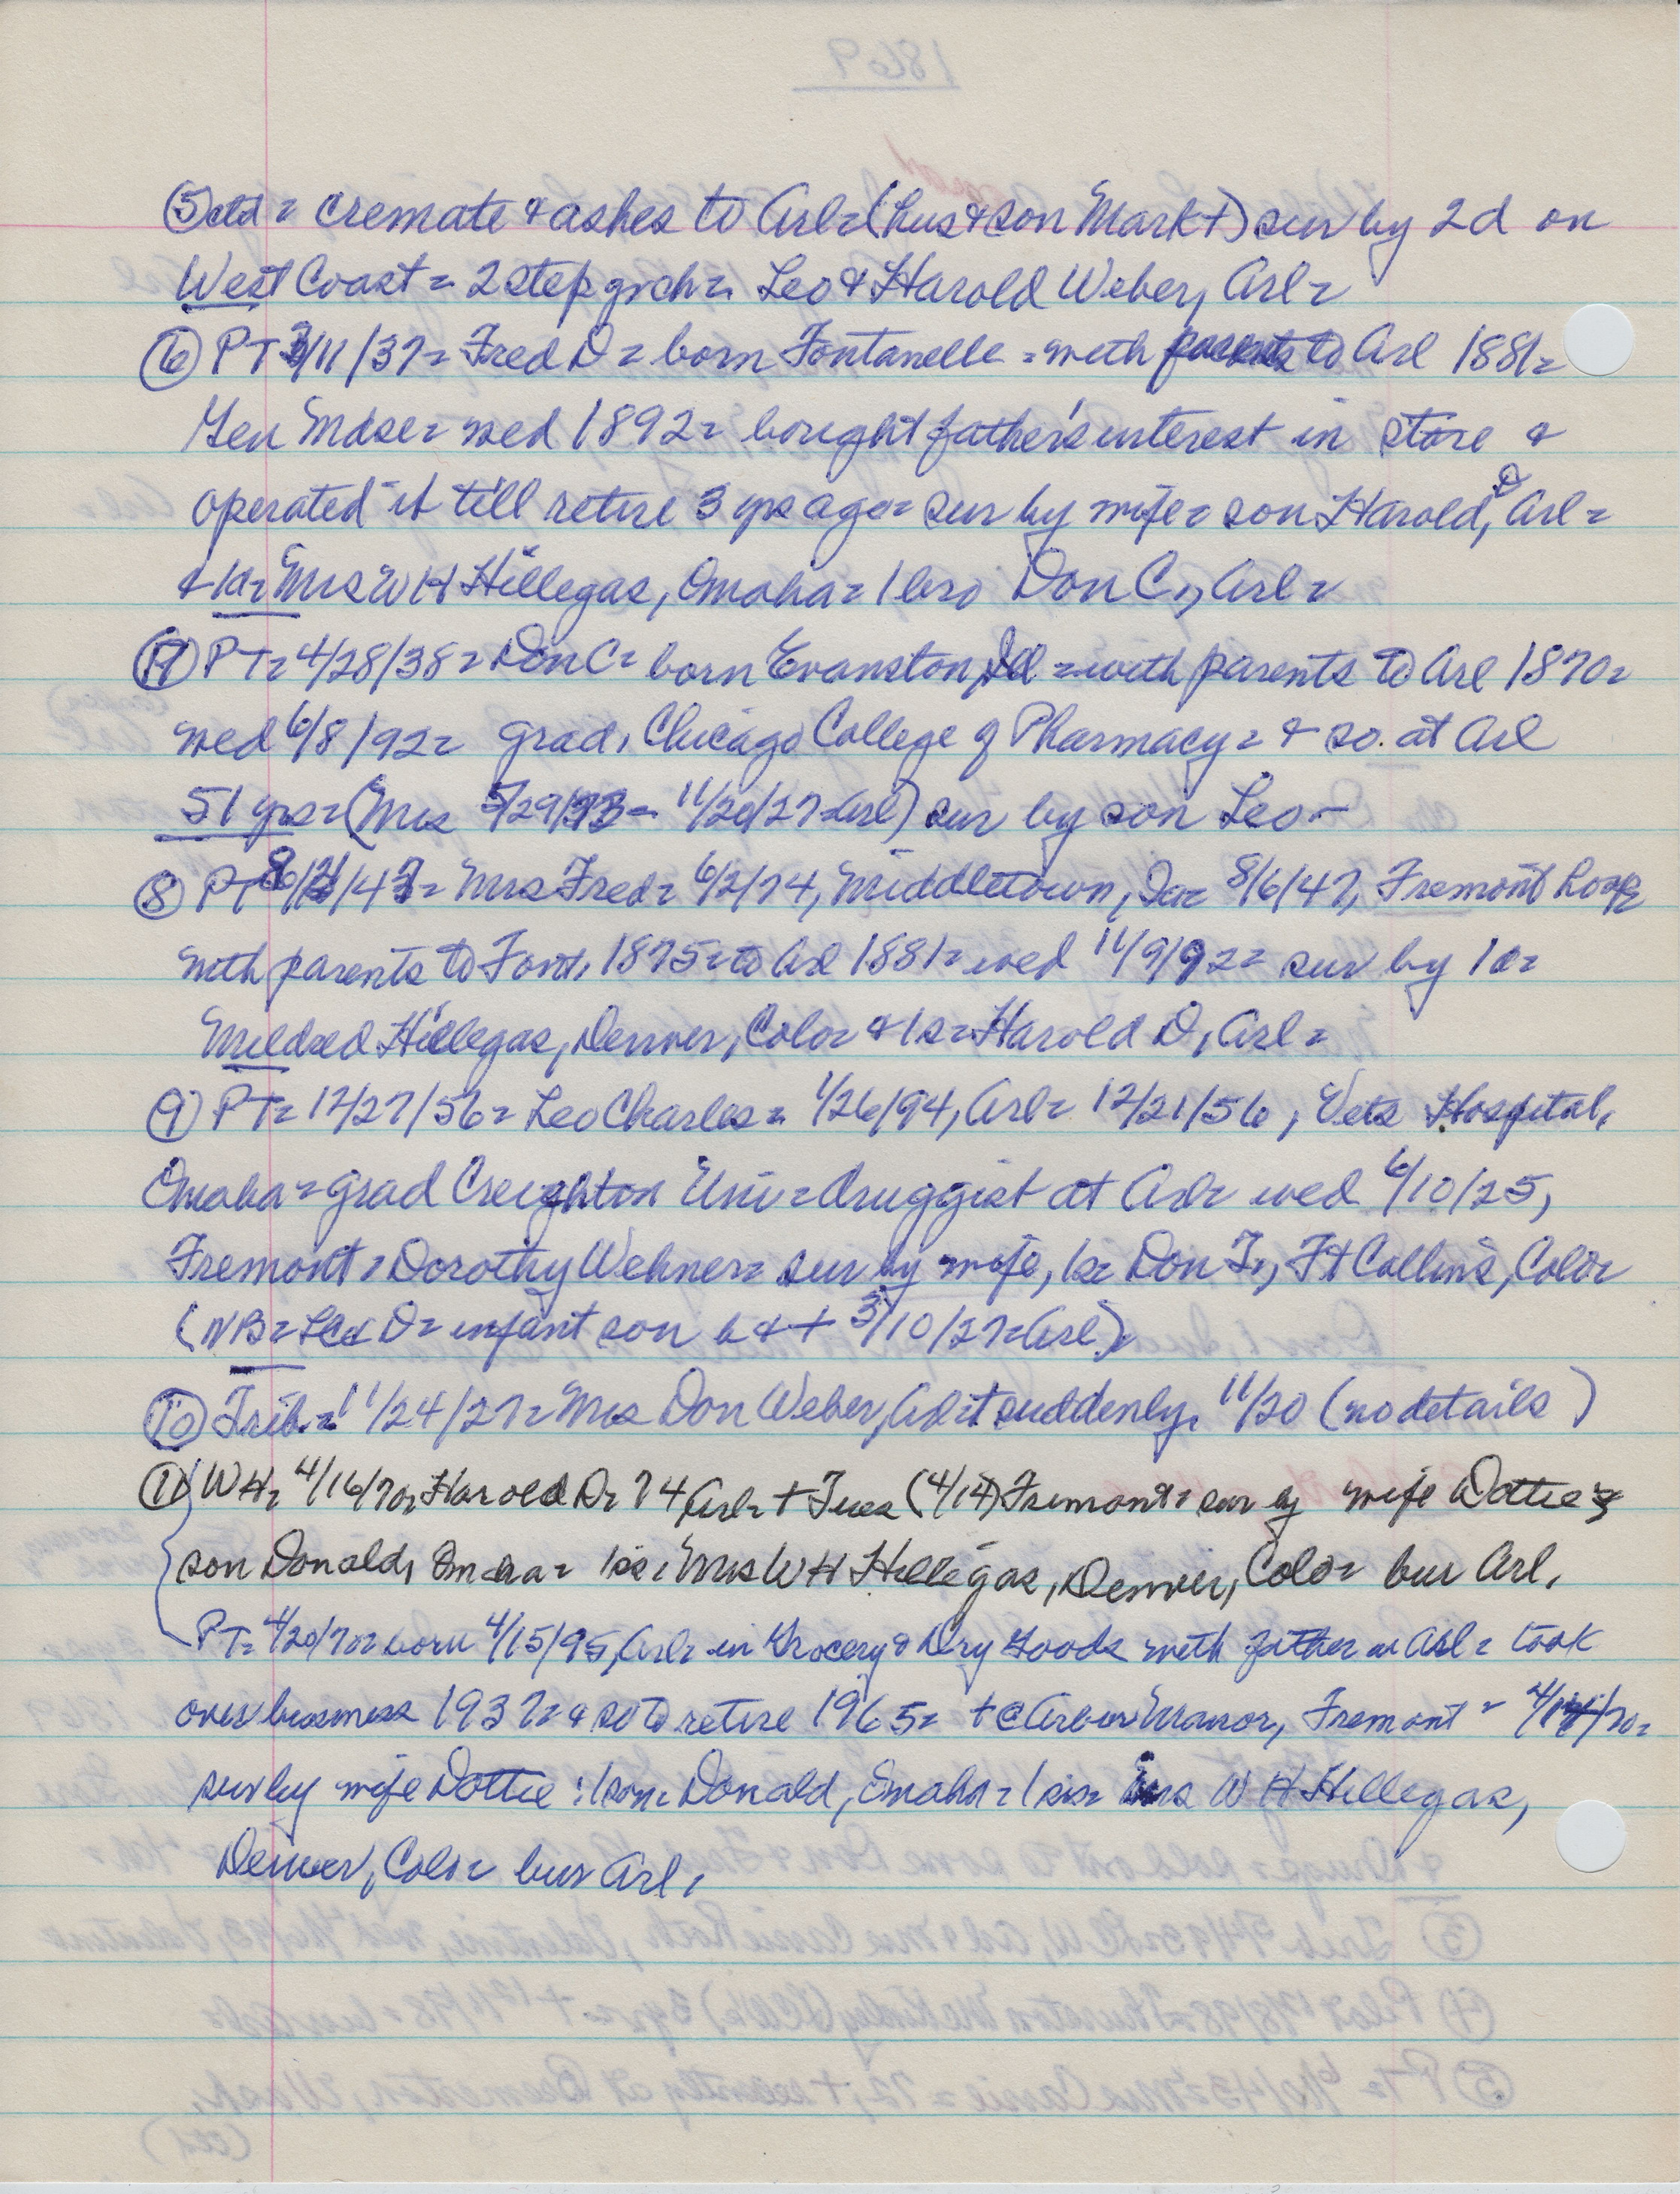 ⑤ctd = cremate & ashes to Arl = (hus & son Mark +) sur by 2d on
West Coast = 2 step grch = Leo & Harold Weber, Arl =
⑥ PT 3/11/37 = Fred D = born Fontanelle = with parents to Arl 1881 =
Gen Mdse = wed 1892 = bought father's interest in store &
operated it till retire 3 yrs ago = sur by wife = son Harold D, Arl =
& 1d = Mrs W H Hillegas, Omaha = 1 bro Don C., Arl =
⑦ PT = 4/28/38 = Don C = born Evanston, Ill = with parents to Arl 1870 =
wed 6/8/92 = grad. Chicago College of Pharmacy = & so. at Arl
51 yrs = (Mrs 5/29/73 = 11/20/27 = Arl) sur by son Leo -
⑧ PT 8/ /47 = Mrs Fred = 6/2/74, Middletown, Ia = 8/6/47, Fremont Hosp
with parents to Font. 1875 = to Arl 1881 = wed 11/9/92 = sur by 1d =
Mildred Hillegas, Denver, Colo = & 1s = Harold D, Arl =
⑨ PT = 12/27/56 = Leo Charles = 1/26/94, Arl = 12/21/56, Vets Hospital,
Omaha = grad Creighton Univ = druggist at Arl = wed 6/10/25,
Fremont = Dorothy Wehner = sur by wife, 1s = Don F., Ft Collins, Colo =
(NB = D = infant son b & + 3/10/27 = Arl)
⑩ Trib. = 11/24/27 = Mrs Don Weber, Arl + suddenly, 11/20 (no details)
⑪ WH = 4/16/70 = Harold D = 74 Arl = + Tues (4/14) Fremont = sur by wife Dottie &
son Donald, Omaha = 1sis, Mrs W H Hillegas, Denver, Colo = bur Arl.
PT = 4/20/70 = born 4/15/95, Arl = in Grocery & Dry Goods with father at Arl = took
over business 1937 = & so to retire 1965 = + @ Arbor Manor, Fremont = 4/14/70 =
sur by wife Dottie : 1 son = Donald, Omaha = 1 sis = Mrs W H Hillegas,
Denver, Colo = bur Arl.